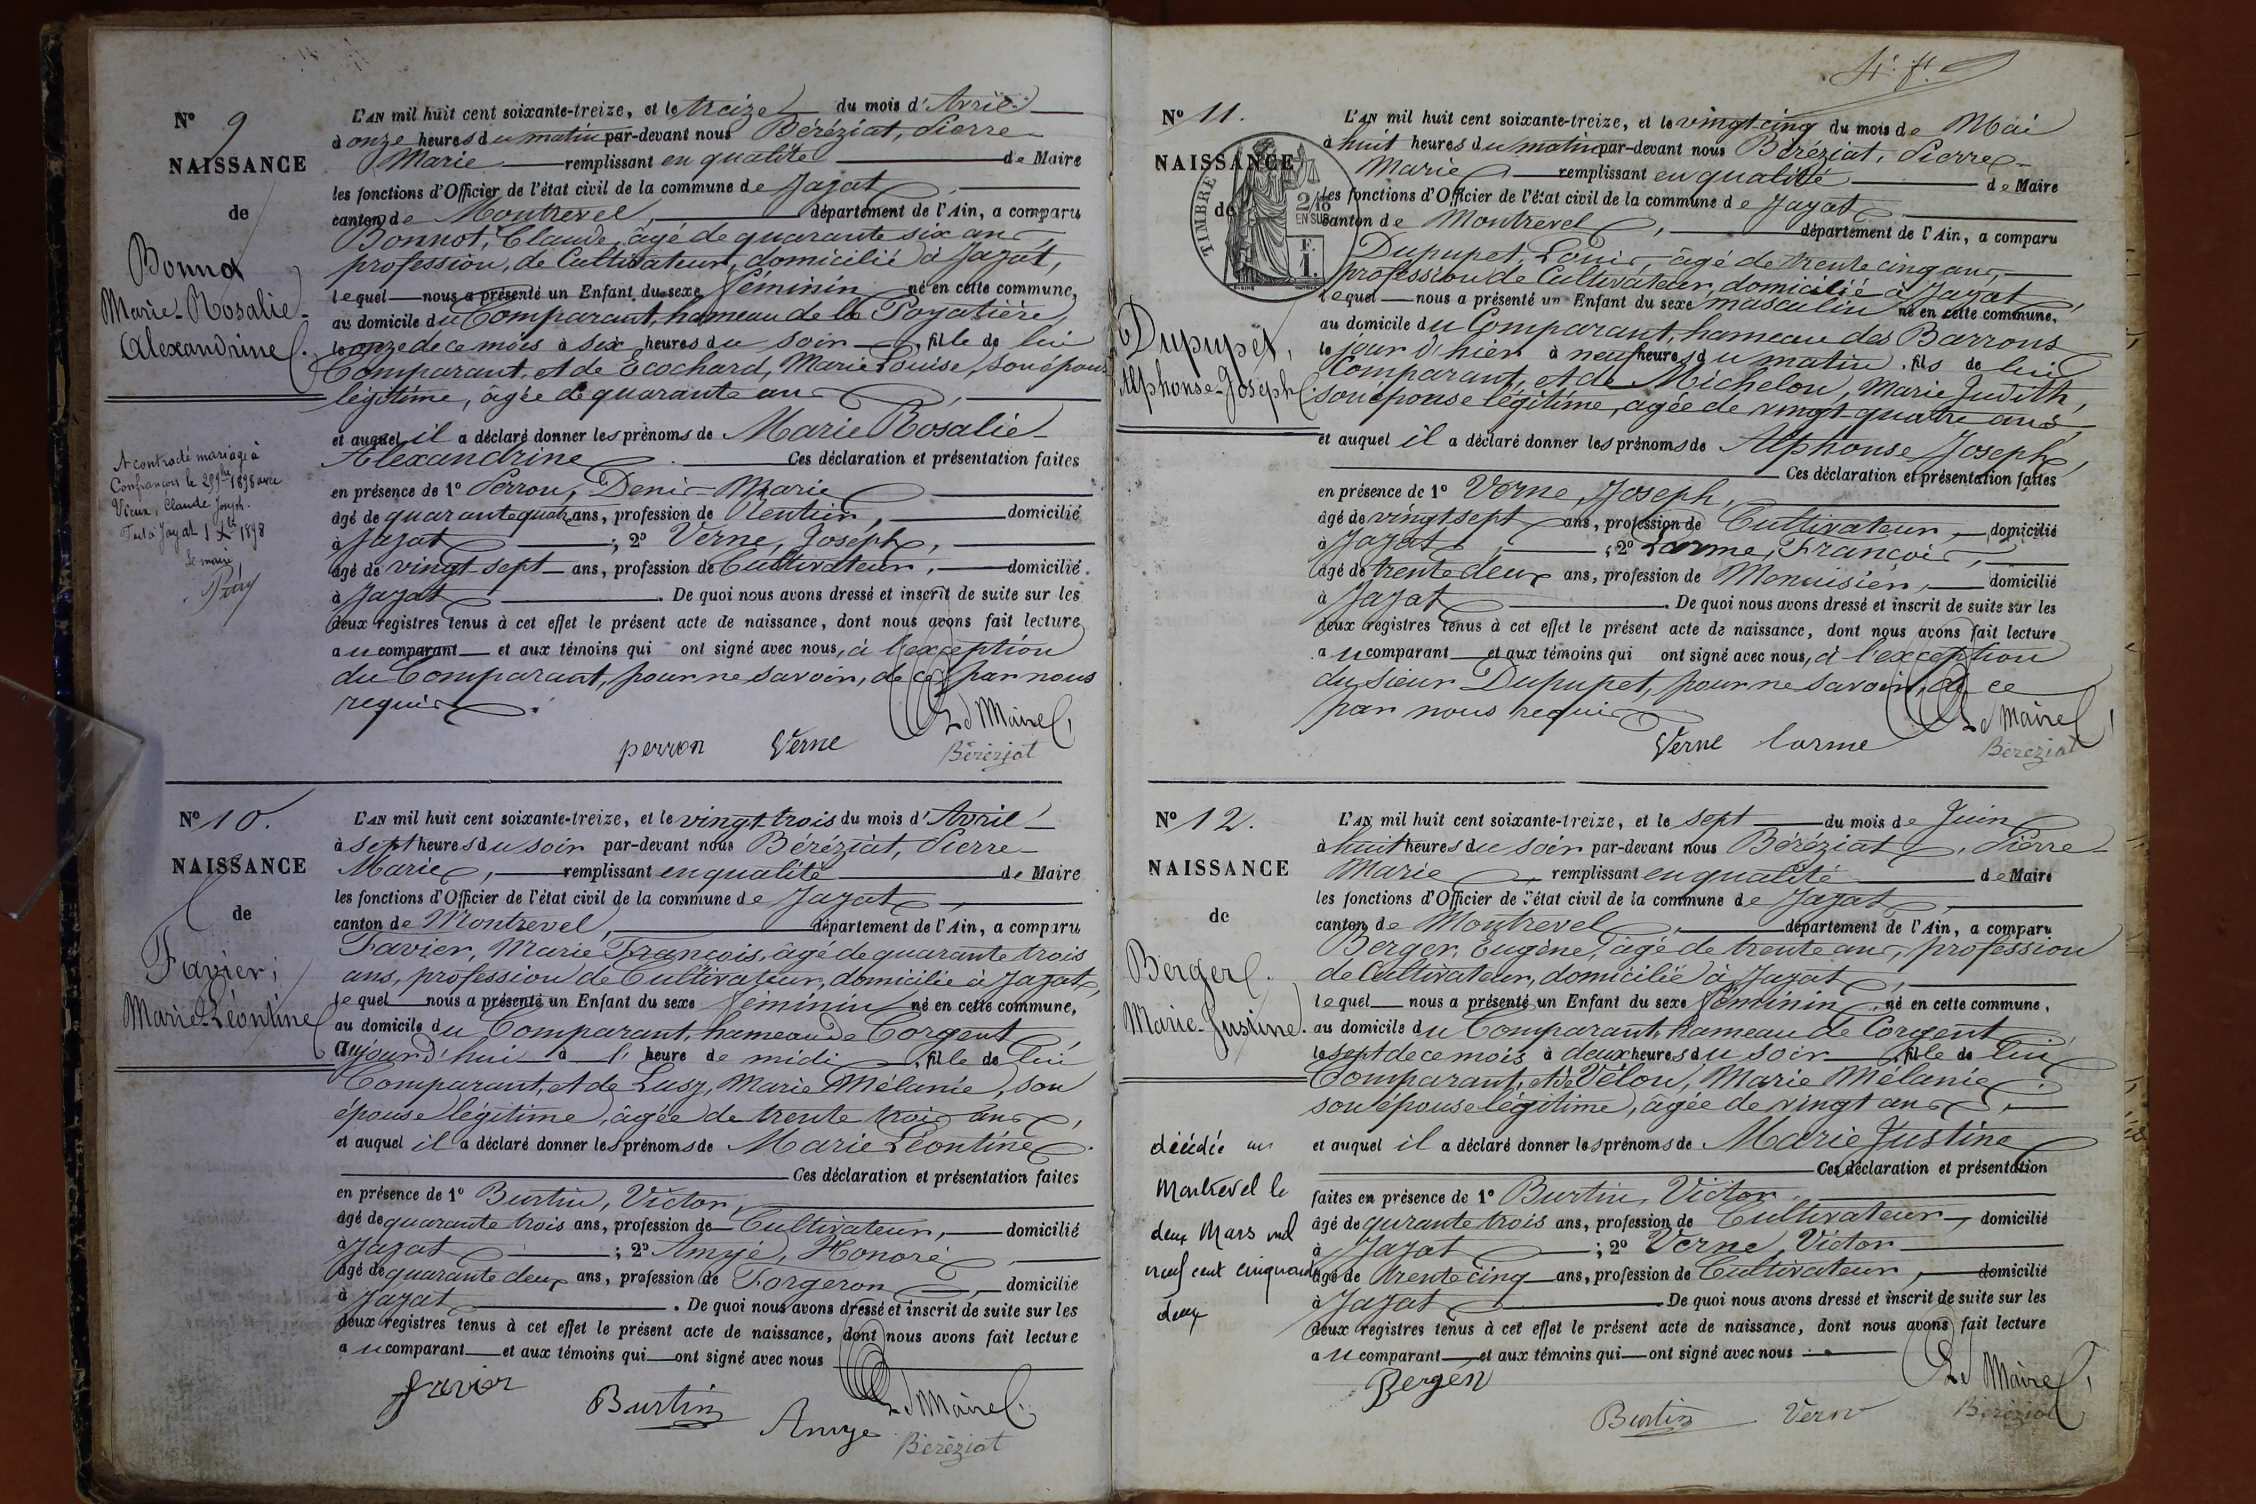 N° 9
NAISSANCE
de
Bonnot
Marie-Rosalie-
Alexandrine
A contracté mariage à
Confrançon le 29 9bre 1898 avec
Vieux, Claude Joseph.
Jayat 1 Xbre 1898
Le maire
L'AN mil huit cent soixante-treize, et le treize du mois d'Avril
à onze heures du matin par-devant nous Béréziat, Pierre-
Marie remplissant en qualité de Maire
les fonctions d'Officier de l'état civil de la commune de Jayat,
canton de Montrevel, département de l'Ain, a comparu
Bonnot, Claude, âgé de quarante six ans,
profession de Cultivateur, domicilié à Jayat,
lequel nous a présenté un Enfant du sexe féminin né en cette commune,
au domicile du Comparant, hameau de la Poyatière,
le onze de ce mois à six heures du soir, fille de lui
Comparant, et de Ecochard, Marie Louise, son épouse
légitime, âgée de quarante ans,
et auquel il a déclaré donner les prénoms de Marie Rosalie-
Alexandrine. Ces déclaration et présentation faites
en présence de 1° Perron, Denis-Marie
âgé de quarante quatre ans, profession de Rentier, domicilié
à Jayat ; 2° Verne, Joseph,
âgé de vingt-sept ans, profession de Cultivateur, domicilié
à Jayat. De quoi nous avons dressé et inscrit de suite sur les
deux registres tenus à cet effet le présent acte de naissance, dont nous avons fait lecture
au comparant et aux témoins qui ont signé avec nous, à l'exception
du Comparant, pour ne savoir, de ce par nous
requis.
Le Maire,
perron Verne Béréziat
N° 10.
NAISSANCE
de
Favier,
Marie-Léontine
L'AN mil huit cent soixante-treize, et le vingt-trois du mois d'Avril
à sept heures du soir par-devant nous Béréziat, Pierre-
Marie, remplissant en qualité de Maire
les fonctions d'Officier de l'état civil de la commune de Jayat,
canton de Montrevel, département de l'Ain, a comparu
Favier, Marie François, âgé de quarante trois
ans, profession de Cultivateur, domicilié à Jayat,
lequel nous a présenté un Enfant du sexe féminin né en cette commune,
au domicile du Comparant, hameau de Corgent,
aujourd'hui à l' heure de midi, fille de lui
Comparant, et de Lusy, Marie Mélanie, son
épouse légitime, âgée de trente trois ans,
et auquel il a déclaré donner les prénoms de Marie Léontine.
Ces déclaration et présentation faites
en présence de 1° Burtin, Victor,
âgé de quarante trois ans, profession de Cultivateur, domicilié
à Jayat ; 2° Amyé, Honoré
âgé de quarante deux ans, profession de Forgeron, domicilié
à Jayat. De quoi nous avons dressé et inscrit de suite sur les
deux registres tenus à cet effet le présent acte de naissance, dont nous avons fait lecture
au comparant et aux témoins qui ont signé avec nous
Le Maire,
favier Burtin Amye Béréziat
4e ft
N° 11.
NAISSANCE
de
TIMBRE
2/10
EN SUS
F.
1.
Dupupet,
Alphonse-Joseph
L'AN mil huit cent soixante-treize, et le vingt cinq du mois de Mai
à huit heures du matin par-devant nous Béréziat, Pierre-
Marie, remplissant en qualité de Maire
les fonctions d'Officier de l'état civil de la commune de Jayat
canton de Montrevel, département de l'Ain, a comparu
Dupupet, Louis, âgé de trente cinq ans,
profession de Cultivateur, domicilié à Jayat,
lequel nous a présenté un Enfant du sexe masculin né en cette commune,
au domicile du Comparant, hameau des Barrons
le jour d'hier à neuf heures du matin, fils de lui
Comparant, et de Michelon, Marie Judith,
son épouse légitime, âgée de vingt-quatre ans
et auquel il a déclaré donner les prénoms de Alphonse Joseph,
Ces déclaration et présentation faites
en présence de 1° Verne, Joseph,
âgé de vingt sept ans, profession de Cultivateur, domicilié
à Jayat, ; 2° Larme, François,
âgé de trente deux ans, profession de Menuisier, domicilié
à Jayat. De quoi nous avons dressé et inscrit de suite sur les
deux registres tenus à cet effet le présent acte de naissance, dont nous avons fait lecture
au comparant et aux témoins qui ont signé avec nous, à l'exception
du sieur Dupupet, pour ne savoir, de ce
par nous requis
Le Maire,
Verne larme Béréziat
N° 12.
NAISSANCE
de
Berger
Marie-Justine.
décédée à
Montrevel le
deux Mars mil
neuf cent cinquante
deux
L'AN mil huit cent soixante-treize, et le sept du mois de Juin
à huit heures du soir par-devant nous Béréziat, Pierre-
Marie remplissant en qualité de Maire
les fonctions d'Officier de l'état civil de la commune de Jayat,
canton de Montrevel, département de l'Ain, a comparu
Berger, Eugène, âgé de trente ans, profession
de Cultivateur, domicilié à Jayat,
lequel nous a présenté un Enfant du sexe féminin né en cette commune,
au domicile du Comparant, hameau de Corgent,
le sept de ce mois à deux heures du soir, fille de lui
Comparant, et de Vélou, Marie Mélanie,
son épouse légitime, âgée de vingt ans,
et auquel il a déclaré donner les prénoms de Marie Justine
Ces déclaration et présentation
faites en présence de 1° Burtin, Victor,
âgé de qurante trois ans, profession de Cultivateur, domicilié
à Jayat ; 2° Verne, Victor
âgé de trente cinq ans, profession de Cultivateur, domicilié
à Jayat. De quoi nous avons dressé et inscrit de suite sur les
deux registres tenus à cet effet le présent acte de naissance, dont nous avons fait lecture
au comparant et aux témoins qui ont signé avec nous.
Le Maire,
Berger Burtin Verne Béréziat